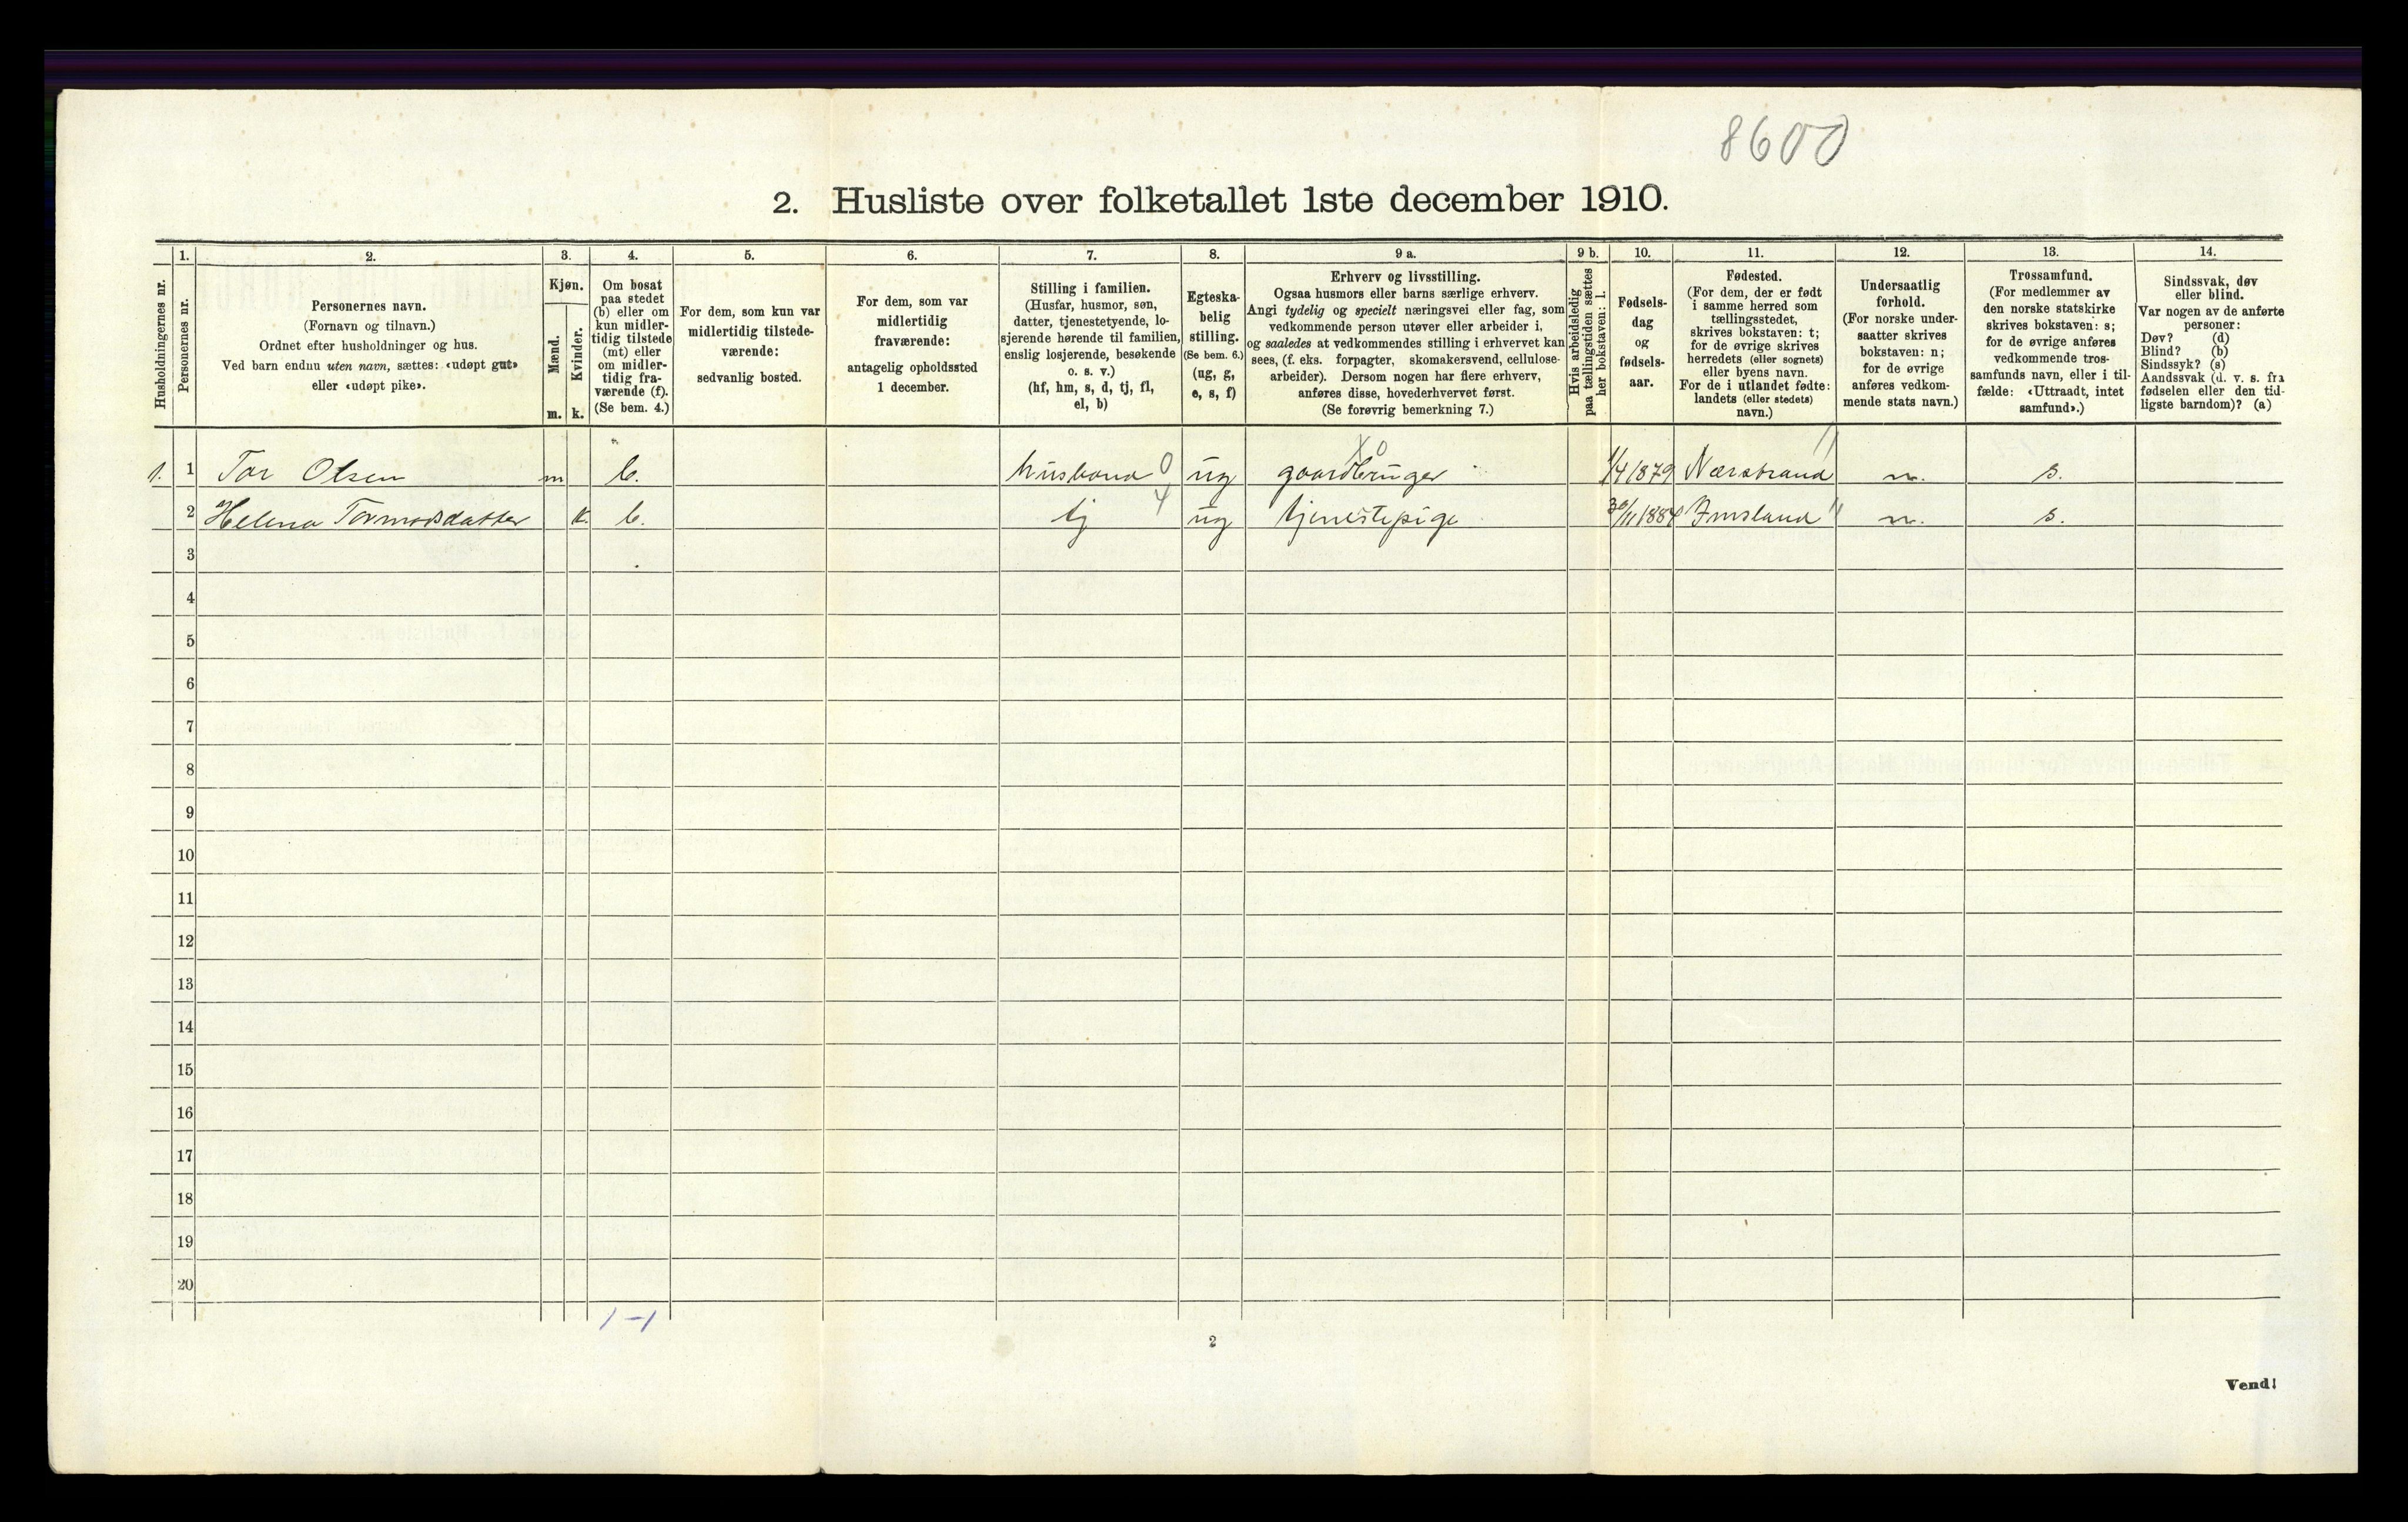 8600
2. Husliste over folketallet 1ste december 1910.
Husholdningernes nr.
1.
Personernes nr.
2.
Personernes navn.
(Fornavn og tilnavn.)
Ordnet efter husholdninger og hus.
Ved barn endnu uten navn, sættes: «udøpt gut»
eller «udøpt pike».
3.
Kjøn.
Mænd.
m.
Kvinder.
k.
4.
Om bosat
paa stedet
(b) eller om
kun midler-
tidig tilstede
(mt) eller
om midler-
tidig fra-
værende (f).
(Se bem. 4.)
5.
For dem, som kun var
midlertidig tilstede-
værende:
sedvanlig bosted.
6.
For dem, som var
midlertidig
fraværende:
antagelig opholdssted
1 december.
7.
Stilling i familien.
(Husfar, husmor, søn,
datter, tjenestetyende, lo-
sjerende hørende til familien,
enslig losjerende, besøkende
o. s. v.)
(hf, hm, s, d, tj, fl,
el, b)
8.
Egteska-
belig
stilling.
(Se bem. 6.)
(ug, g,
e, s, f)
9 a.
Erhverv og livsstilling.
Ogsaa husmors eller barns særlige erhverv.
Angi tydelig og specielt næringsvei eller fag, som
vedkommende person utøver eller arbeider i,
og saaledes at vedkommendes stilling i erhvervet kan
sees, (f. eks. forpagter, skomakersvend, cellulose-
arbeider). Dersom nogen har flere erhverv,
anføres disse, hovederhvervet først.
(Se forøvrig bemerkning 7.)
9 b.
Hvis arbeidsledig
paa tællingstiden sættes
her bokstaven: l.
10.
Fødsels-
dag
og
fødsels-
aar.
11.
Fødested.
(For dem, der er født
i samme herred som
tællingsstedet,
skrives bokstaven: t;
for de øvrige skrives
herredets (eller sognets)
eller byens navn.
For de i utlandet fødte:
landets (eller stedets)
navn.)
12.
Undersaatlig
forhold.
(For norske under-
saatter skrives
bokstaven: n;
for de øvrige
anføres vedkom-
mende stats navn.)
13.
Trossamfund.
(For medlemmer av
den norske statskirke
skrives bokstaven: s;
for de øvrige anføres
vedkommende tros-
samfunds navn, eller i til-
fælde: «Uttraadt, intet
samfund».)
14.
Sindssvak, døv
eller blind.
Var nogen av de anførte
personer:
Døv? (d)
Blind? (b)
Sindssyk? (s)
Aandssvak (d. v. s. fra
fødselen eller den tid-
ligste barndom)? (a)
1. 1 Tor Olsen m b. husbond 0 ug gaardbruger X0 1/4 1879 Nærstrand 11 n. s.
2 Helena Tormodsdatter k. b. tj 4 ug tjenestepige 30/11 1884 Imsland 11 n. s.
3
4
5
6
7
8
9
10
11
12
13
14
15
16
17
18
19
20
1 – 1
2
Vend!